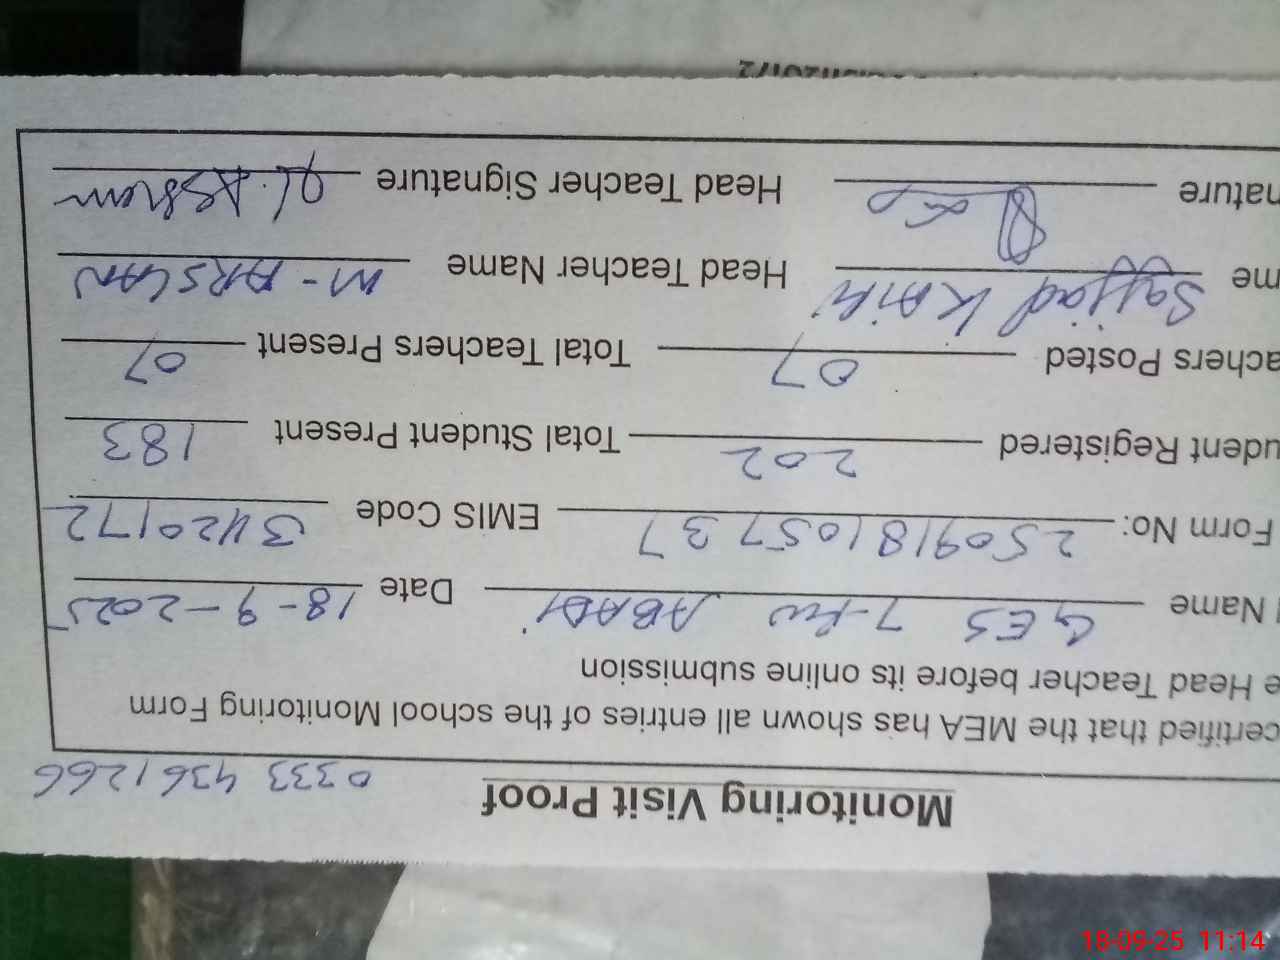 Monitoring Visit Proof 0333 4361266
certified that the MEA has shown all entries of the school Monitoring Form
e Head Teacher before its online submission
Name GES 7-RW ABADI Date 18-9-2025
Form No: 250918105737 EMIS Code 3420172
udent Registered 202 Total Student Present 183
achers Posted 07 Total Teachers Present 07
me Sajjad Head Teacher Name M-ARSLAN
nature Head Teacher Signature
18-09-25 11:14